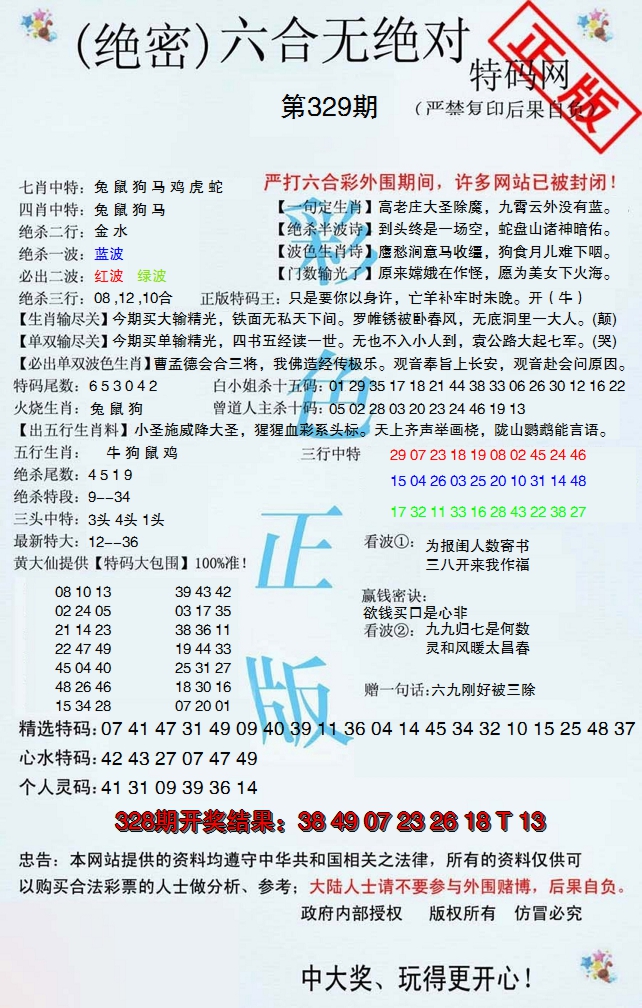 (绝密)六合无绝对
特码网
正版
第329期
(严禁复印后果自负)
严打六合彩外围期间，许多网站已被封闭!
七肖中特：兔鼠狗马鸡虎蛇
四肖中特：兔鼠狗马
【一句定生肖】高老庄大圣除魔，九霄云外没有蓝。
绝杀二行：金水
【绝杀半波诗】到头终是一场空，蛇盘山诸神暗佑。
绝杀一波：蓝波
【波色生肖诗】鹰愁涧意马收缰，狗食月儿难下咽。
必出二波：红波 绿波
【门数输光了】原来嫦娥在作怪，愿为美女下火海。
绝杀三行：08 ,12 ,10合 正版特码王：只是要你以身许，亡羊补牢时未晚。开（牛）
【生肖输尽关】今期买大输精光，铁面无私天下间。罗帷锈被卧春风，无底洞里一大人。(颠)
【单双输尽关】今期买单输精光，四书五经读一世。无也不入小人到，袁公路大起七军。(哭)
【必出单双波色生肖】曹孟德会合三将，我佛造经传极乐。观音奉旨上长安，观音赴会问原因。
特码尾数：6 5 3 0 4 2 白小姐杀十五码：01 29 35 17 18 21 44 38 33 06 26 30 12 16 22
火烧生肖：兔鼠狗 曾道人主杀十码：05 02 28 03 20 23 24 46 19 13
【出五行生肖料】小圣施威降大圣，猩猩血彩系头标。天上齐声举画桡，陇山鹦鹉能言语。
五行生肖：牛狗鼠鸡 三行中特 29 07 23 18 19 08 02 45 24 46
绝杀尾数：4 5 1 9 15 04 26 03 25 20 10 31 14 48
绝杀特段：9--34
三头中特：3头 4头 1头 17 32 11 33 16 28 43 22 38 27
最新特大：12--36
看波①：为报闺人数寄书
三八开来我作福
黄大仙提供【特码大包围】100%准!
08 10 13 39 43 42
02 24 05 03 17 35
21 14 23 38 36 11
22 47 49 19 44 33
45 04 40 25 31 27
48 26 46 18 30 16
15 34 28 07 20 01
赢钱密诀：
欲钱买口是心非
看波②：九九归七是何数
灵和风暖太昌春
赠一句话：六九刚好被三除
彩色正版
精选特码：07 41 47 31 49 09 40 39 11 36 04 14 45 34 32 10 15 25 48 37
心水特码：42 43 27 07 47 49
个人灵码：41 31 09 39 36 14
328期开奖结果：38 49 07 23 26 18 T 13
忠告：本网站提供的资料均遵守中华共和国相关之法律，所有的资料仅供可
以购买合法彩票的人士做分析、参考；大陆人士请不要参与外围赌博，后果自负。
政府内部授权 版权所有 仿冒必究
中大奖、玩得更开心!